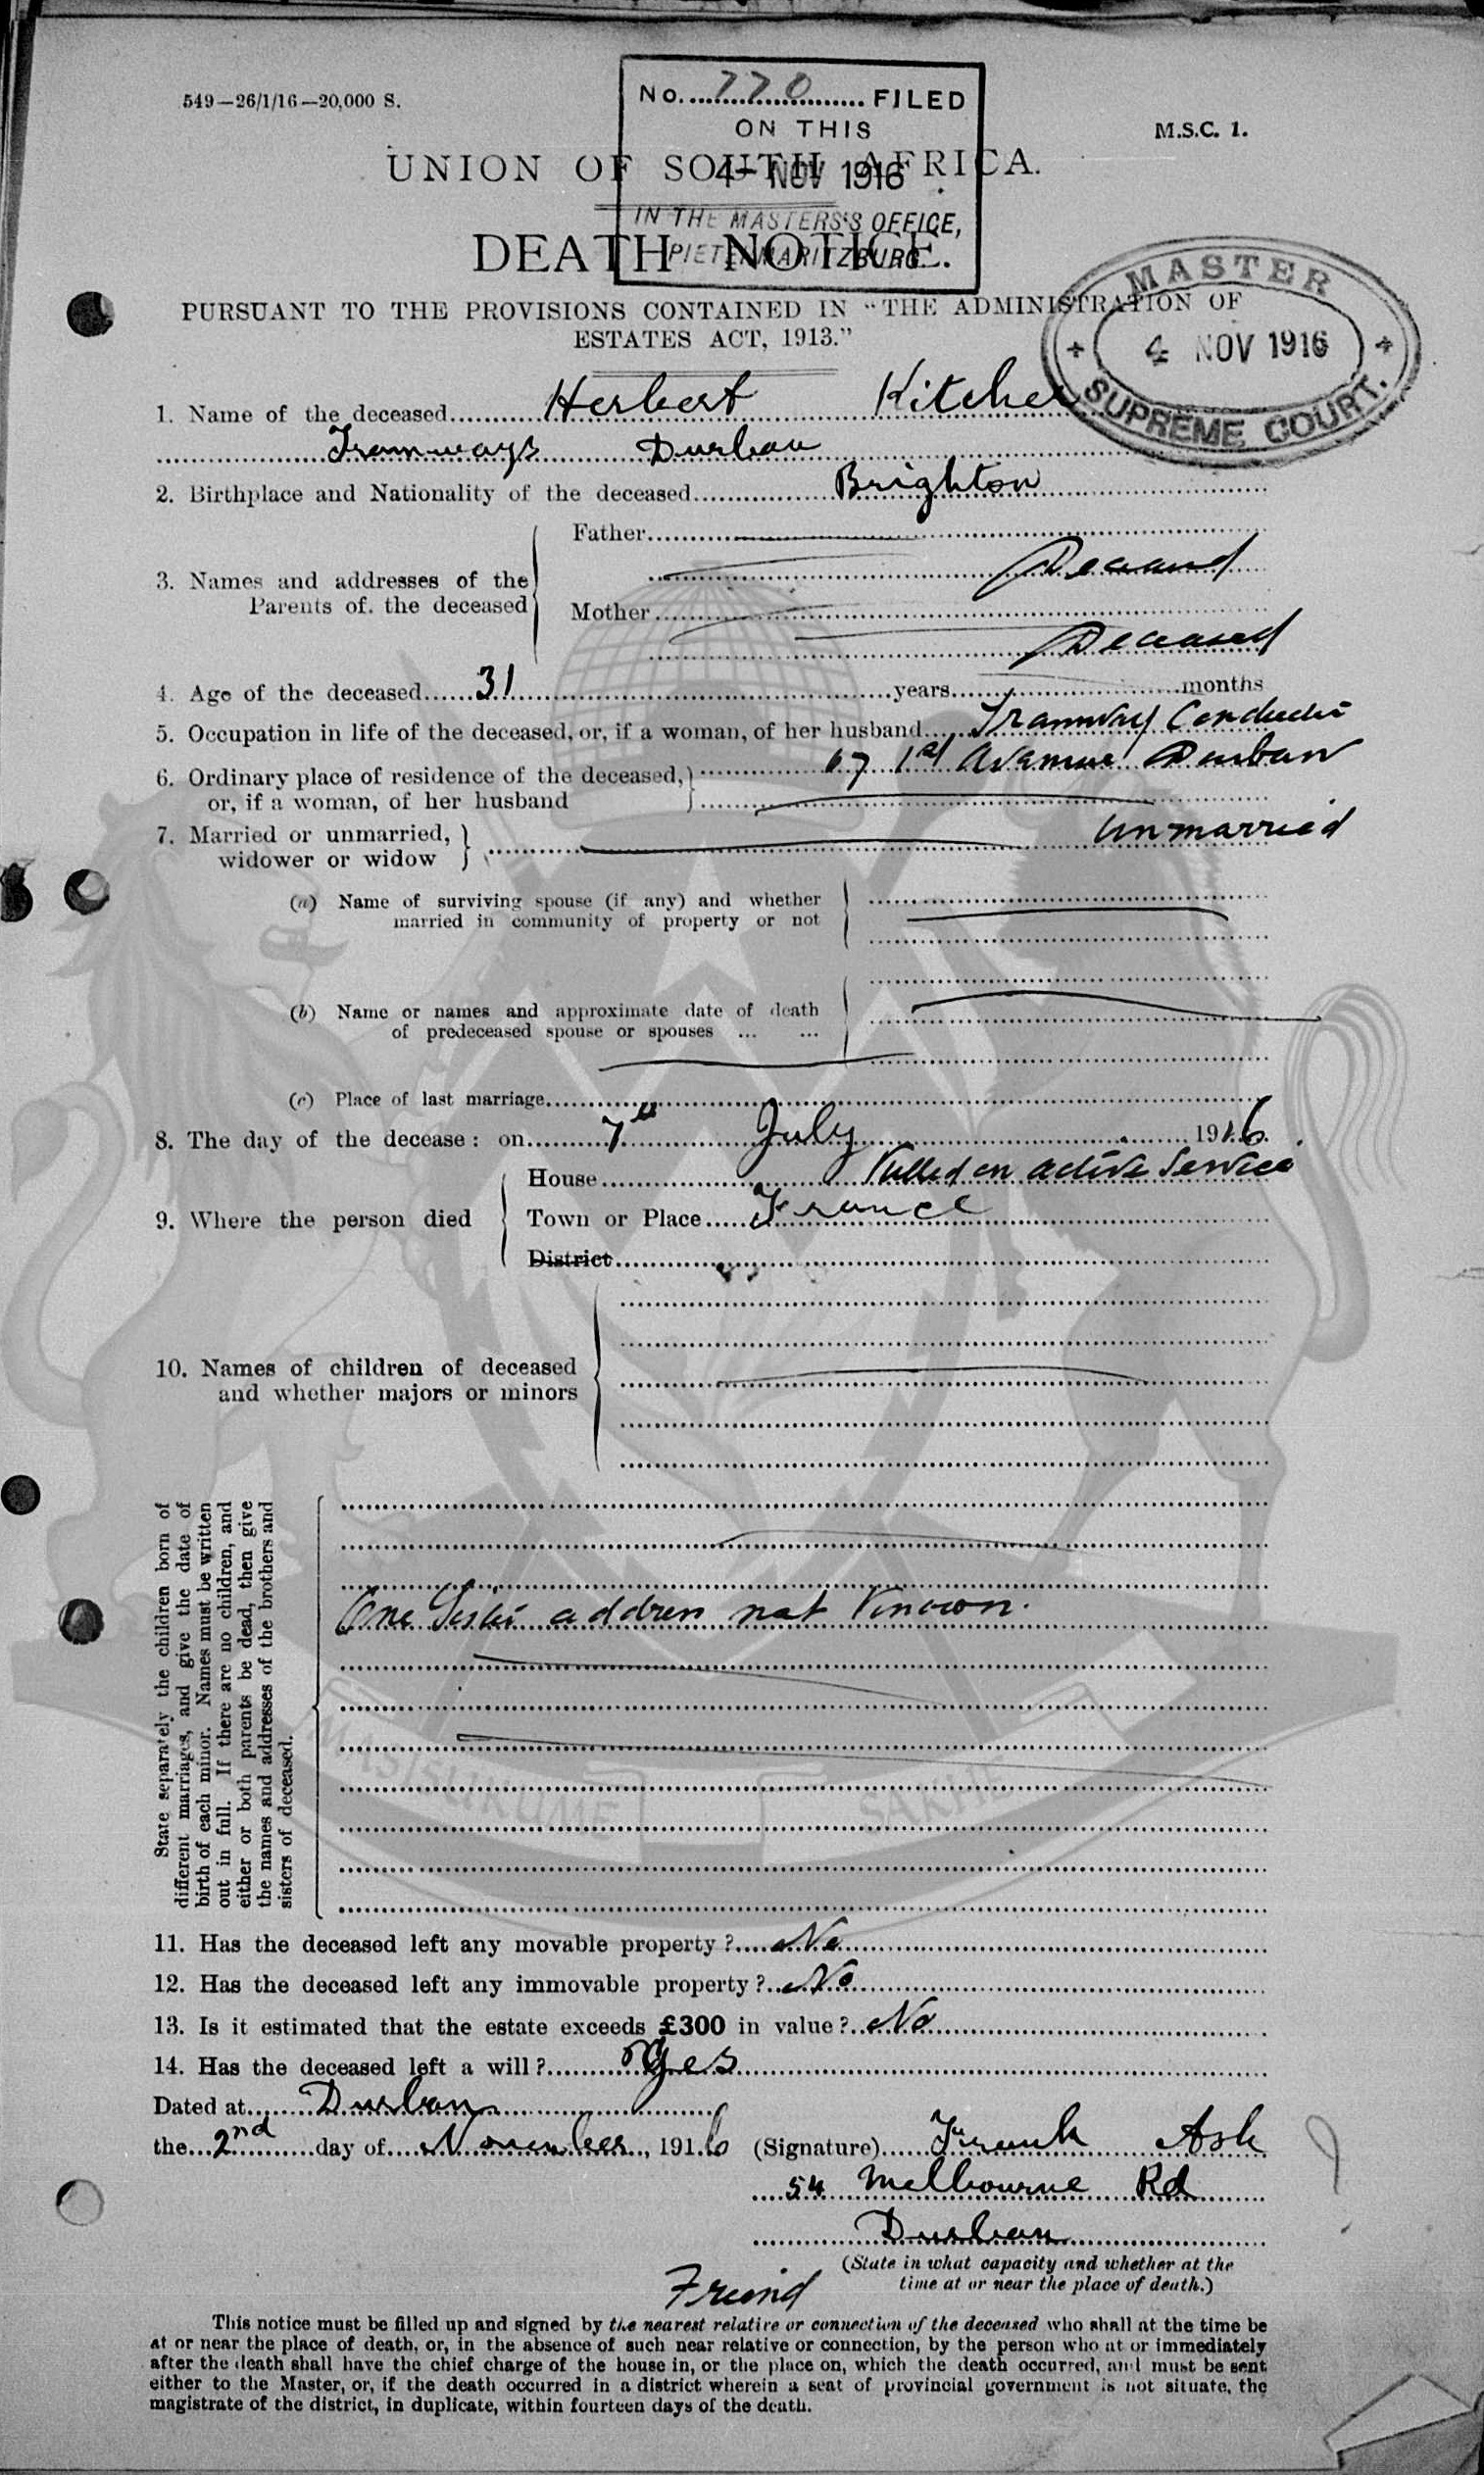 549—26/1/16—20,000 S.
No. 770 FILED
ON THIS
M.S.C. 1.
UNION OF SOUTH AFRICA.
4- NOV 1916
IN THE MASTERS'S OFFICE,
DEATH NOTICE.
PIETERMARITZBURG.
MASTER
4 NOV 1916
SUPREME COURT.
PURSUANT TO THE PROVISIONS CONTAINED IN "THE ADMINISTRATION OF
ESTATES ACT, 1913."
1. Name of the deceased Herbert Kitcher
Tramways Durban
2. Birthplace and Nationality of the deceased Brighton
Father
Deceased
3. Names and addresses of the
Parents of. the deceased
Mother
Deceased
4. Age of the deceased 31 years months
5. Occupation in life of the deceased, or, if a woman, of her husband Tramway Conductor
6. Ordinary place of residence of the deceased, 67 1st Avenue Durban
or, if a woman, of her husband
7. Married or unmarried, Unmarried
widower or widow
(a) Name of surviving spouse (if any) and whether
married in community of property or not
(b) Name or names and approximate date of death
of predeceased spouse or spouses ... ...
(c) Place of last marriage
8. The day of the decease: on 7th July 1916.
House Killed on active Service
9. Where the person died Town or Place France
District
10. Names of children of deceased
and whether majors or minors
State separately the children born of
different marriages, and give the date of
birth of each minor. Names must be written
out in full. If there are no children, and
either or both parents be dead, then give
the names and addresses of the brothers and
sisters of deceased.
One Sister address not Known.
11. Has the deceased left any movable property? No
12. Has the deceased left any immovable property? No
13. Is it estimated that the estate exceeds £300 in value? No
14. Has the deceased left a will? Yes
Dated at Durban
the 2nd day of November, 1916 (Signature) Frank Ash
54 Melbourne Rd
Durban
(State in what capacity and whether at the
time at or near the place of death.)
Friend
This notice must be filled up and signed by the nearest relative or connection of the deceased who shall at the time be
at or near the place of death, or, in the absence of such near relative or connection, by the person who at or immediately
after the death shall have the chief charge of the house in, or the place on, which the death occurred, and must be sent
either to the Master, or, if the death occurred in a district wherein a seat of provincial government is not situate, the
magistrate of the district, in duplicate, within fourteen days of the death.